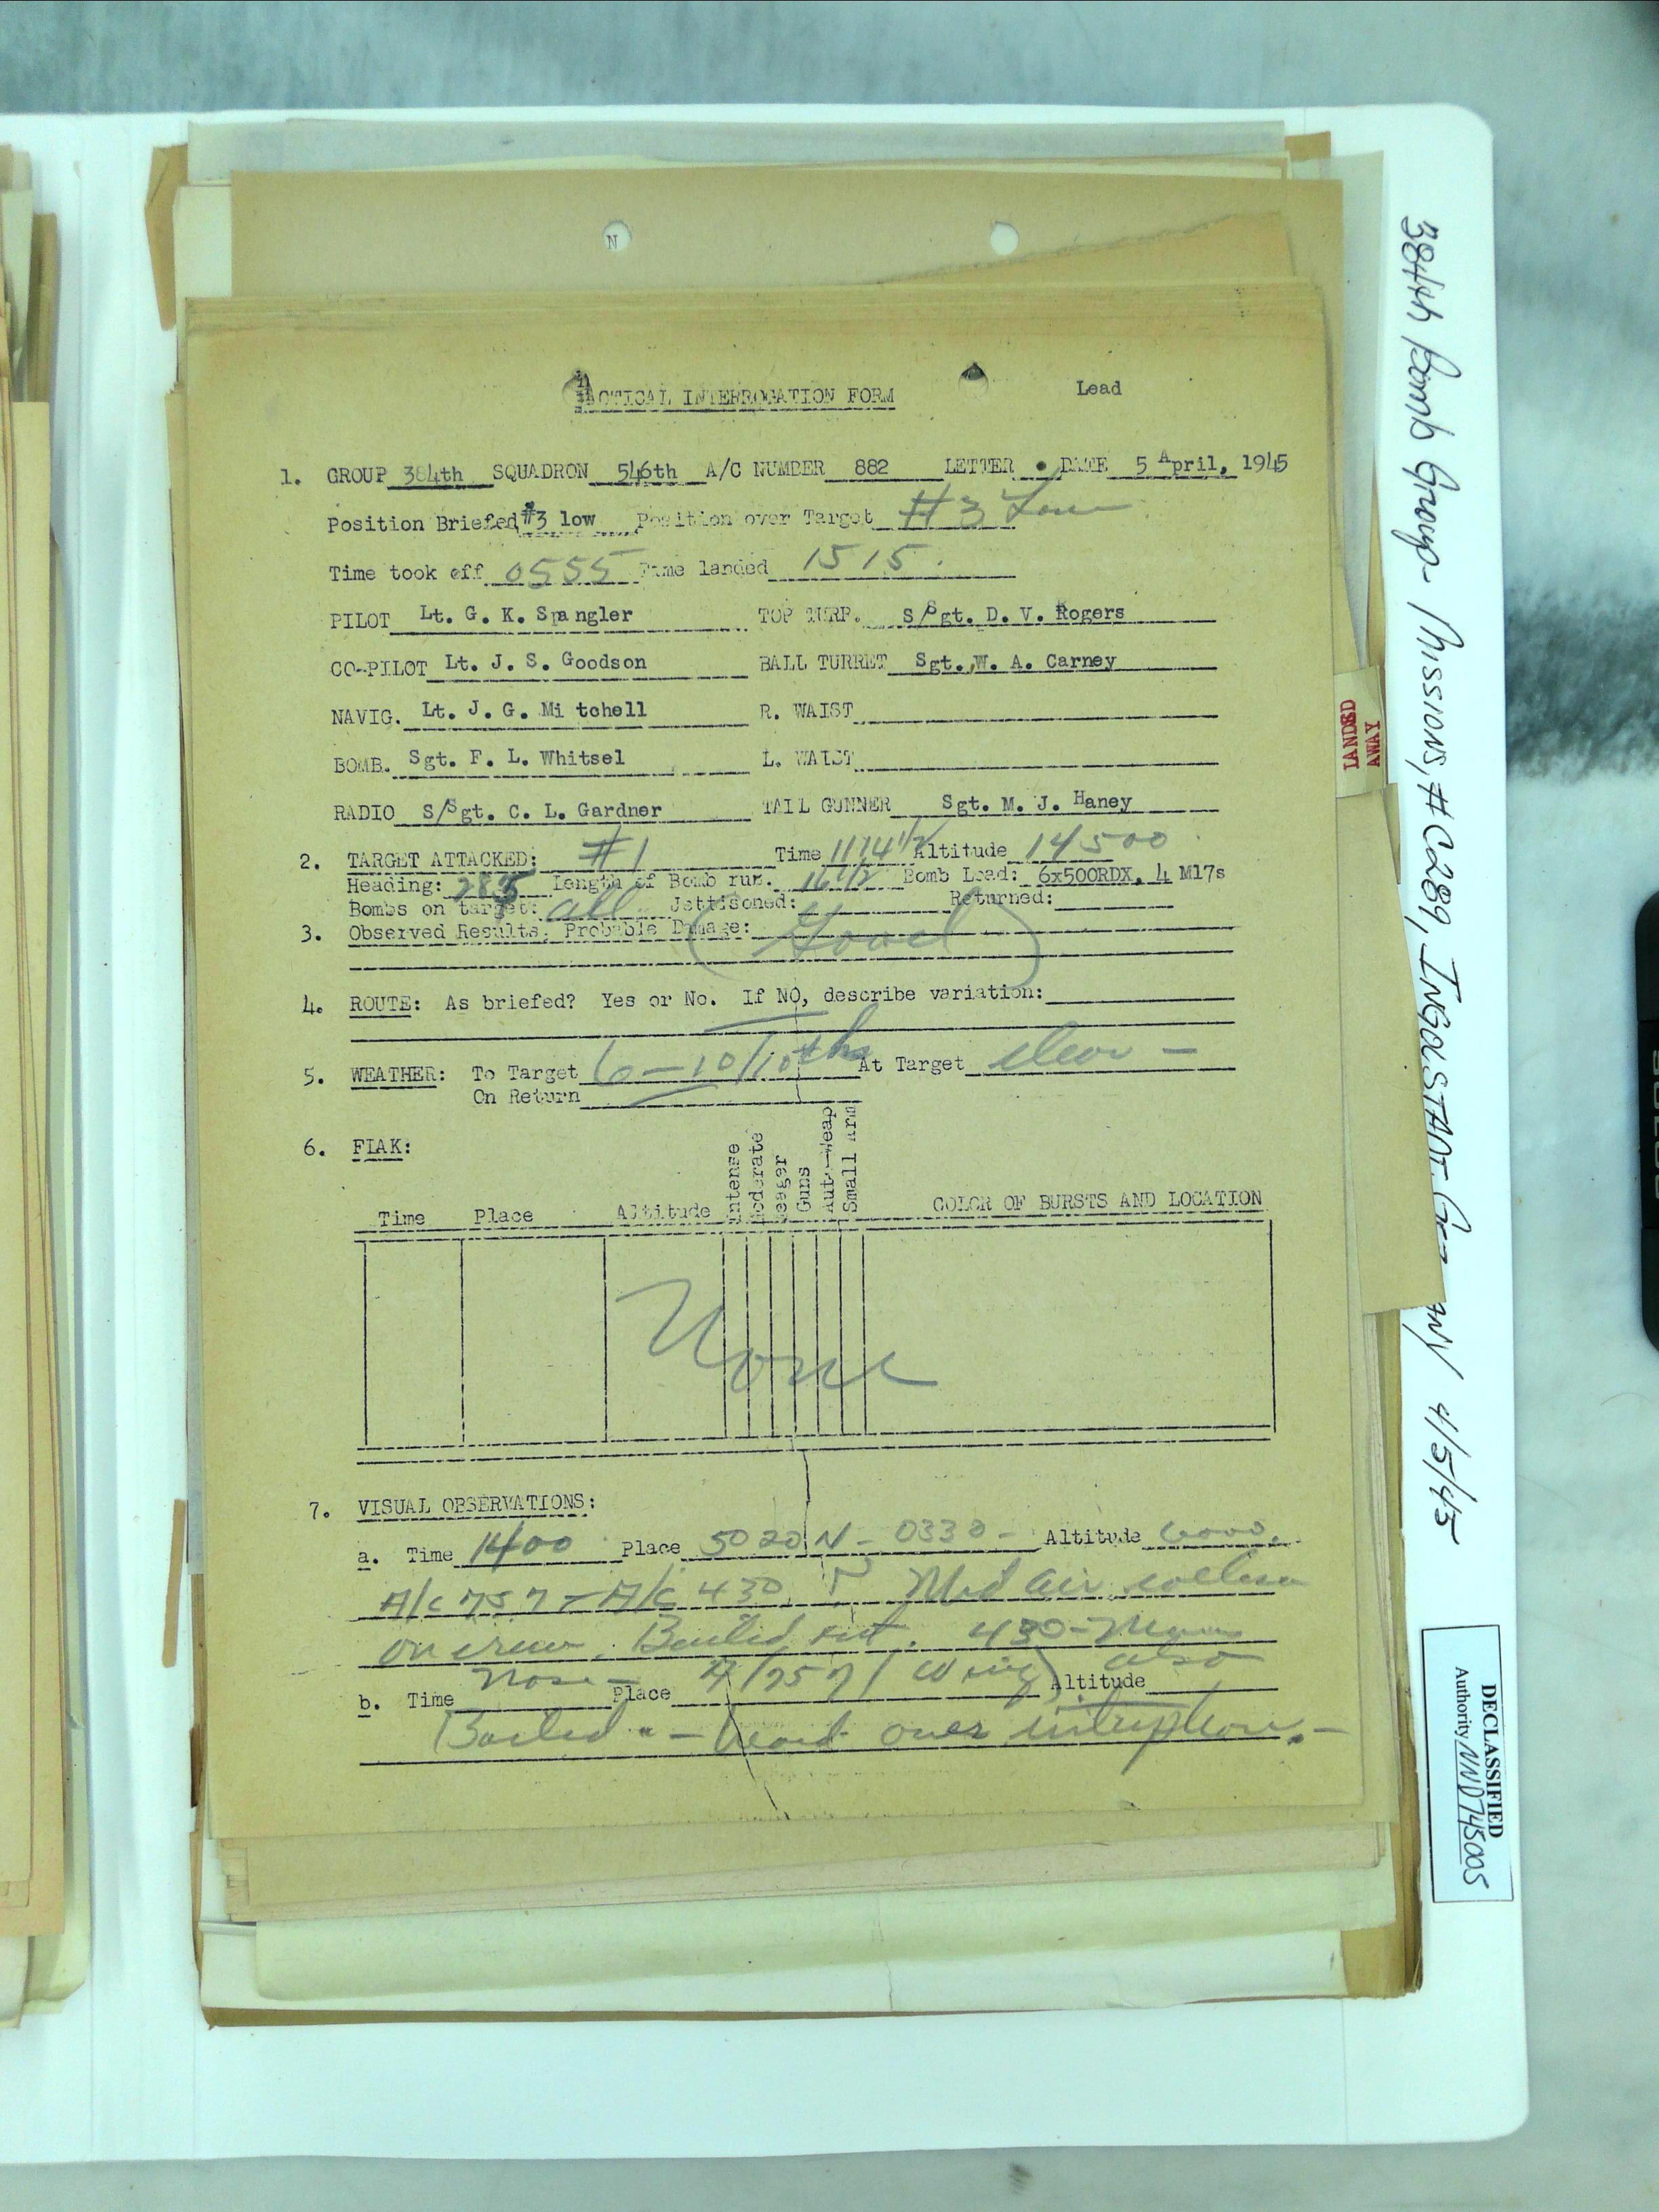 N
TACTICAL INTERROGATION FORM Lead
1. GROUP 384th SQUADRON 546th A/C NUMBER 882 LETTER . DATE 5 April, 1945
Position Briefed #3 low Position over Target #3 Low
Time took off 0555 Time landed 1515.
PILOT Lt. G. K. Spangler TOP TURR. S/Sgt. D. V. Rogers
CO-PILOT Lt. J. S. Goodson BALL TURRET Sgt. W. A. Carney
NAVIG. Lt. J. G. Mitchell R. WAIST
BOMB. Sgt. F. L. Whitsel L. WAIST
RADIO S/Sgt. C. L. Gardner TAIL GUNNER Sgt. M. J. Haney
2. TARGET ATTACKED: #1 Time 1114 1/2 Altitude 14500
Heading: 285 Length of Bomb run. 16 1/2 Bomb Load: 6x500RDX, 4 M17s
Bombs on target: all Jettisoned: Returned:
3. Observed Results, Probable Damage: (Good)
4. ROUTE: As briefed? Yes or No. If NO, describe variation:
5. WEATHER: To Target 6-10/10ths At Target clear -
On Return
6. FLAK:
Time Place Altitude Intense Moderate Meager Guns Aut.-Weap Small Arm COLOR OF BURSTS AND LOCATION
None
7. VISUAL OBSERVATIONS:
a. Time 1400 Place 5020 N - 0330 - Altitude 6000.
A/C 757 - A/C 430 Mid air collision
on crew. Bailed out. 430 -
nose - A/757 (wing) also
b. Time Place Altitude
Bailed " - heard over interphone. -
LANDED
AWAY
384th Bomb Group - Missions, # C289, INGOLSTADT Germany 4/5/45
DECLASSIFIED
Authority NND745005